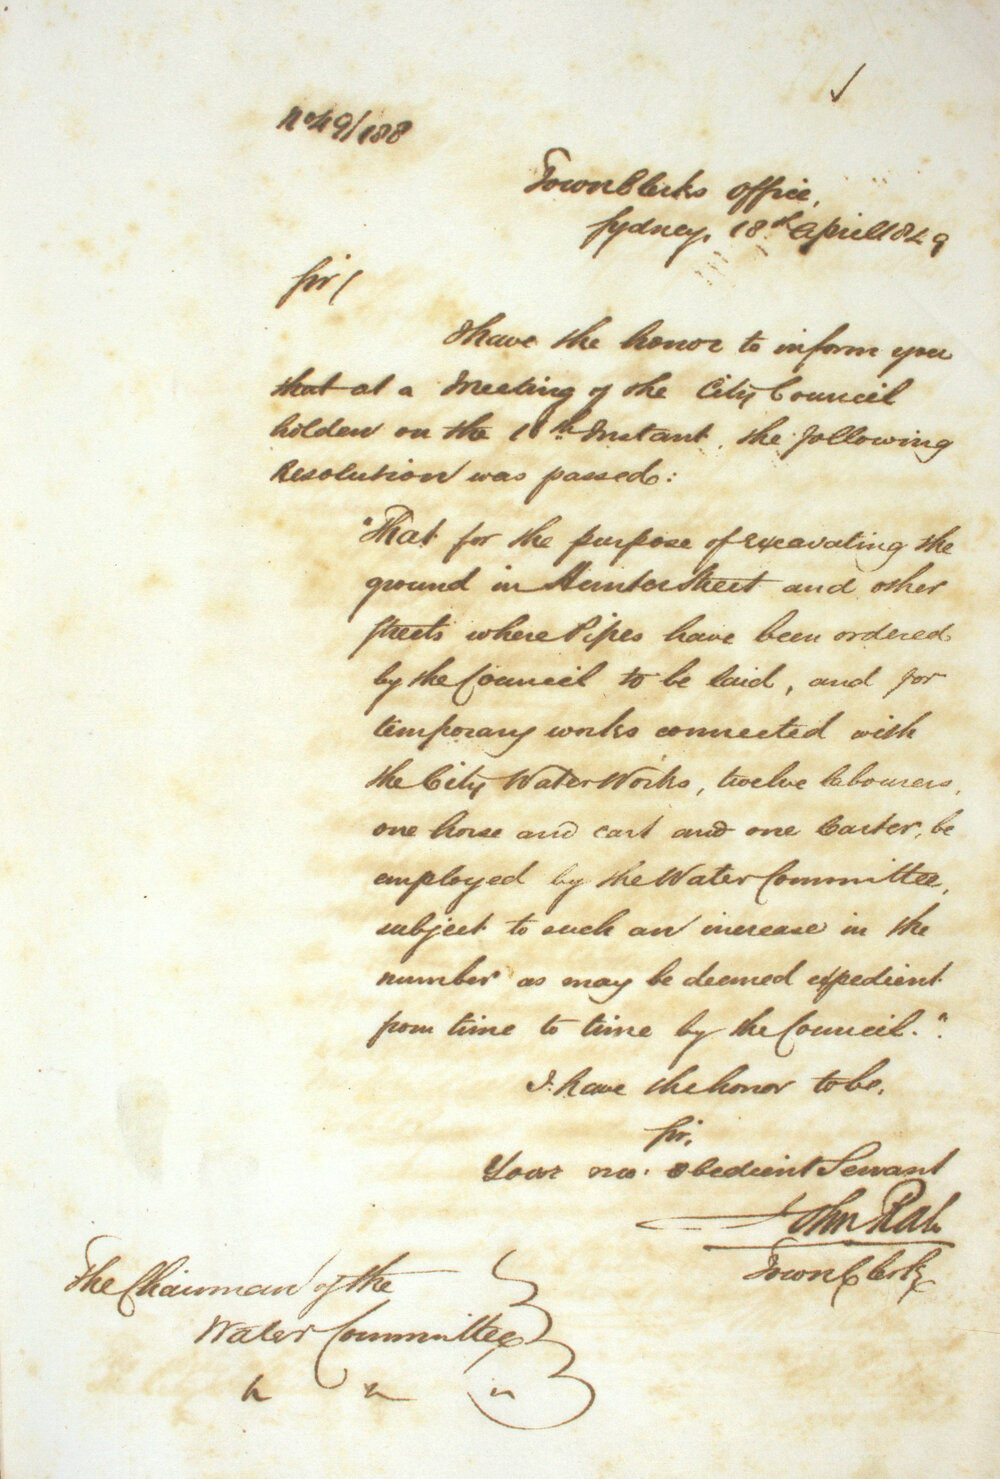 No 49/188
Town Clerks office,
Sydney, 18th April 1849
Sir/
I have the honor to inform you
that at a Meeting of the City Council
holden on the Instant, the following
Resolution was passed:
"That for the purpose of excavating the
ground in Hunter Street and other
Streets where Pipes have been ordered
by the Council to be laid, and for
temporary works connected with
the City Water Works, twelve labourers,
one horse and cart and one Carter, be
employed by the Water Committee,
subject to such an increase in the
number as may be deemed expedient
from time to time by the Council.".
I have the honor to be,
Sir,
Your mo. obedient Servant
John Rae
Town Clerk
The Chairman of the
Water Committee
" " "